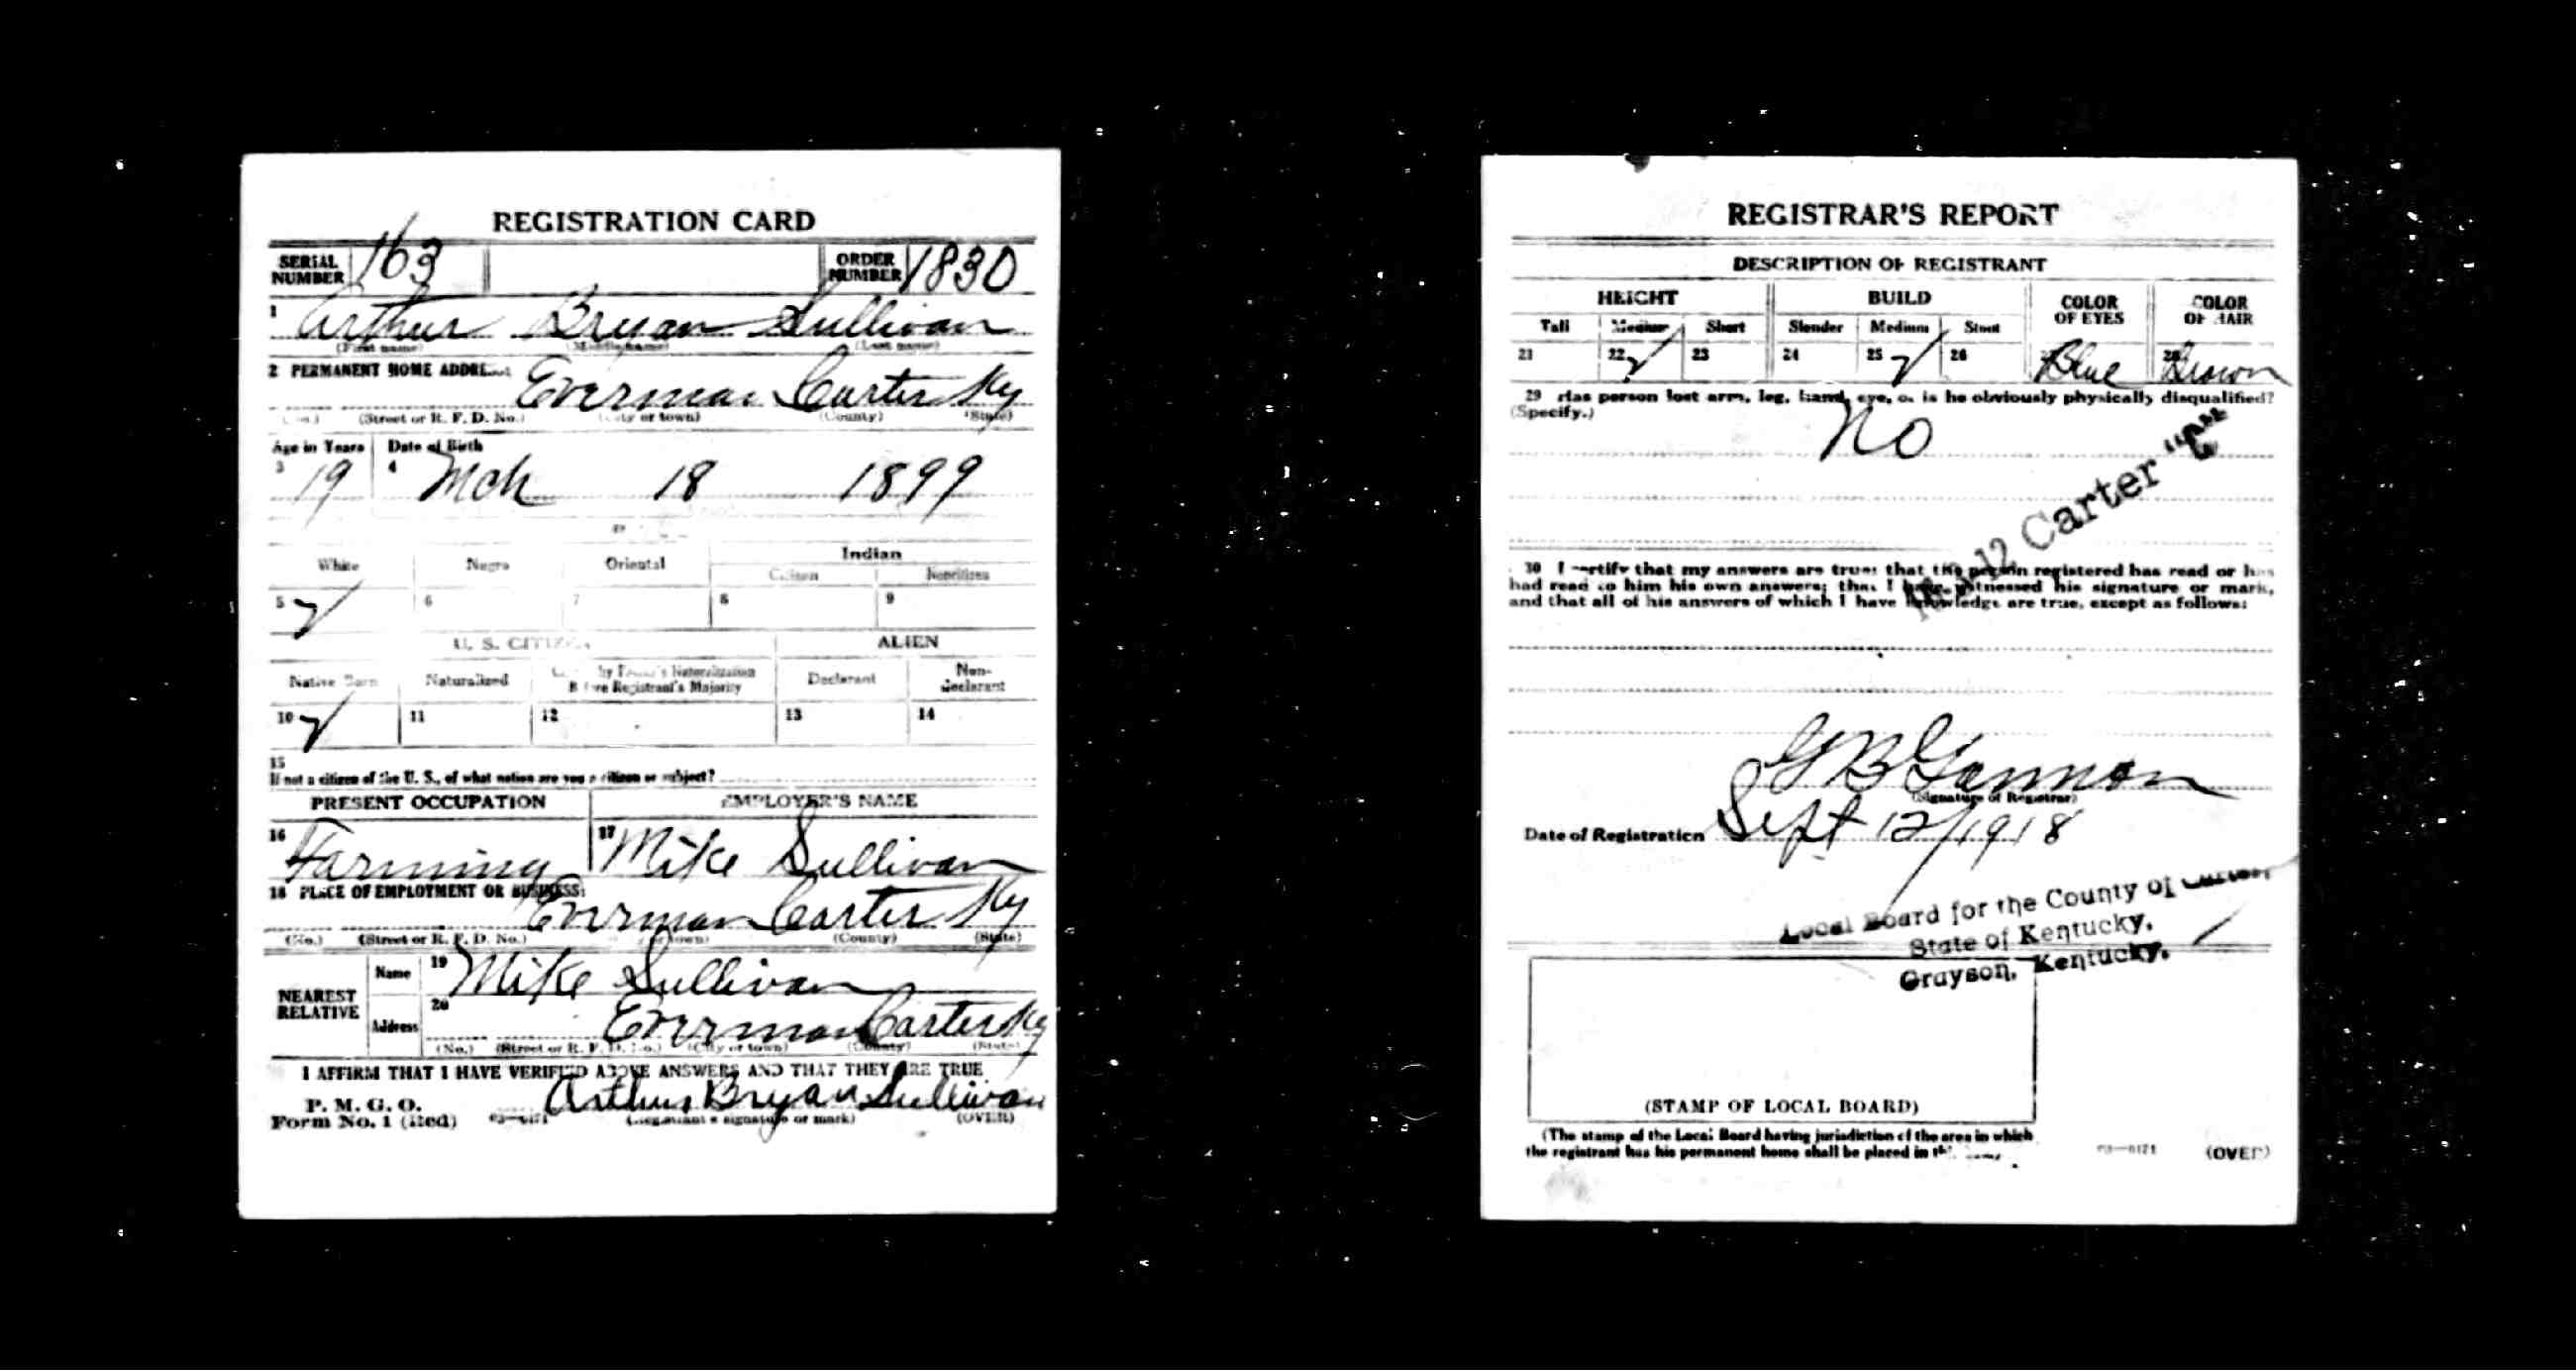 REGISTRATION CARD
SERIAL NUMBER 163 ORDER NUMBER 1830
1 Arthur Bryan Sullivan
(First name) (Middle name) (Last name)
2 PERMANENT HOME ADDRESS: Everman Carter Ky
(No.) (Street or R. F. D. No.) (City or town) (County) (State)
Age in Years Date of Birth
3 19 4 Mch 18 1899
Indian
White Negro Oriental Citizen Noncitizen
5 ✓ 6 7 8 9
U. S. CITIZEN ALIEN
Native Born Naturalized Citizen by Father's Naturalization Before Registrant's Majority Declarant Non-declarant
10 ✓ 11 12 13 14
15
If not a citizen of the U. S., of what nation are you a citizen or subject?
PRESENT OCCUPATION EMPLOYER'S NAME
16 Farming 17 Mike Sullivan
18 PLACE OF EMPLOYMENT OR BUSINESS:
Everman Carter Ky
(No.) (Street or R. F. D. No.) (City or town) (County) (State)
NEAREST RELATIVE Name 19 Mike Sullivan
Address 20 Everman Carter Ky
(No.) (Street or R. F. D. No.) (City or town) (County) (State)
I AFFIRM THAT I HAVE VERIFIED ABOVE ANSWERS AND THAT THEY ARE TRUE
P. M. G. O.
Form No. 1 (Red) Arthur Bryan Sullivan
(Registrant's signature or mark) (OVER)
REGISTRAR'S REPORT
DESCRIPTION OF REGISTRANT
HEIGHT BUILD COLOR OF EYES COLOR OF HAIR
Tall Medium Short Slender Medium Stout
21 22 ✓ 23 24 25 ✓ 26 Blue Brown
29 Has person lost arm, leg, hand, eye, or is he obviously physically disqualified?
(Specify.) No
Carter
30 I certify that my answers are true; that the person registered has read or has
had read to him his own answers; that I have witnessed his signature or mark,
and that all of his answers of which I have knowledge are true, except as follows:
G B Gannon
(Signature of Registrar)
Date of Registration Sept 12/1918
Local Board for the County of Carter,
State of Kentucky,
Grayson, Kentucky.
(STAMP OF LOCAL BOARD)
(The stamp of the Local Board having jurisdiction of the area in which
the registrant has his permanent home shall be placed in
(OVER)